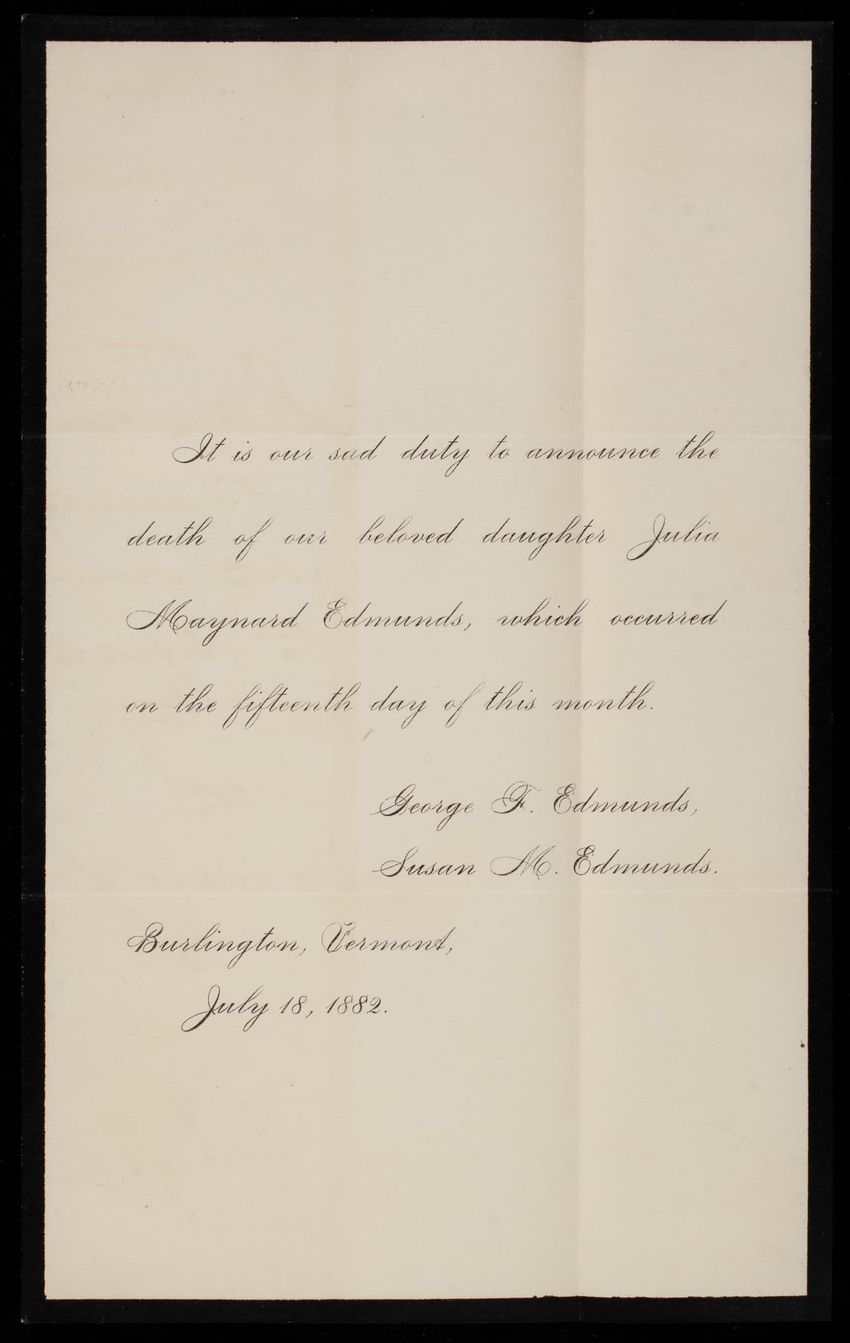 It is our sad duty to announce the
death of our beloved daughter Julia
Maynard Edmunds, which occurred
on the fifteenth day of this month.
George F. Edmunds,
Susan M. Edmunds.
Burlington, Vermont,
July 18, 1882.